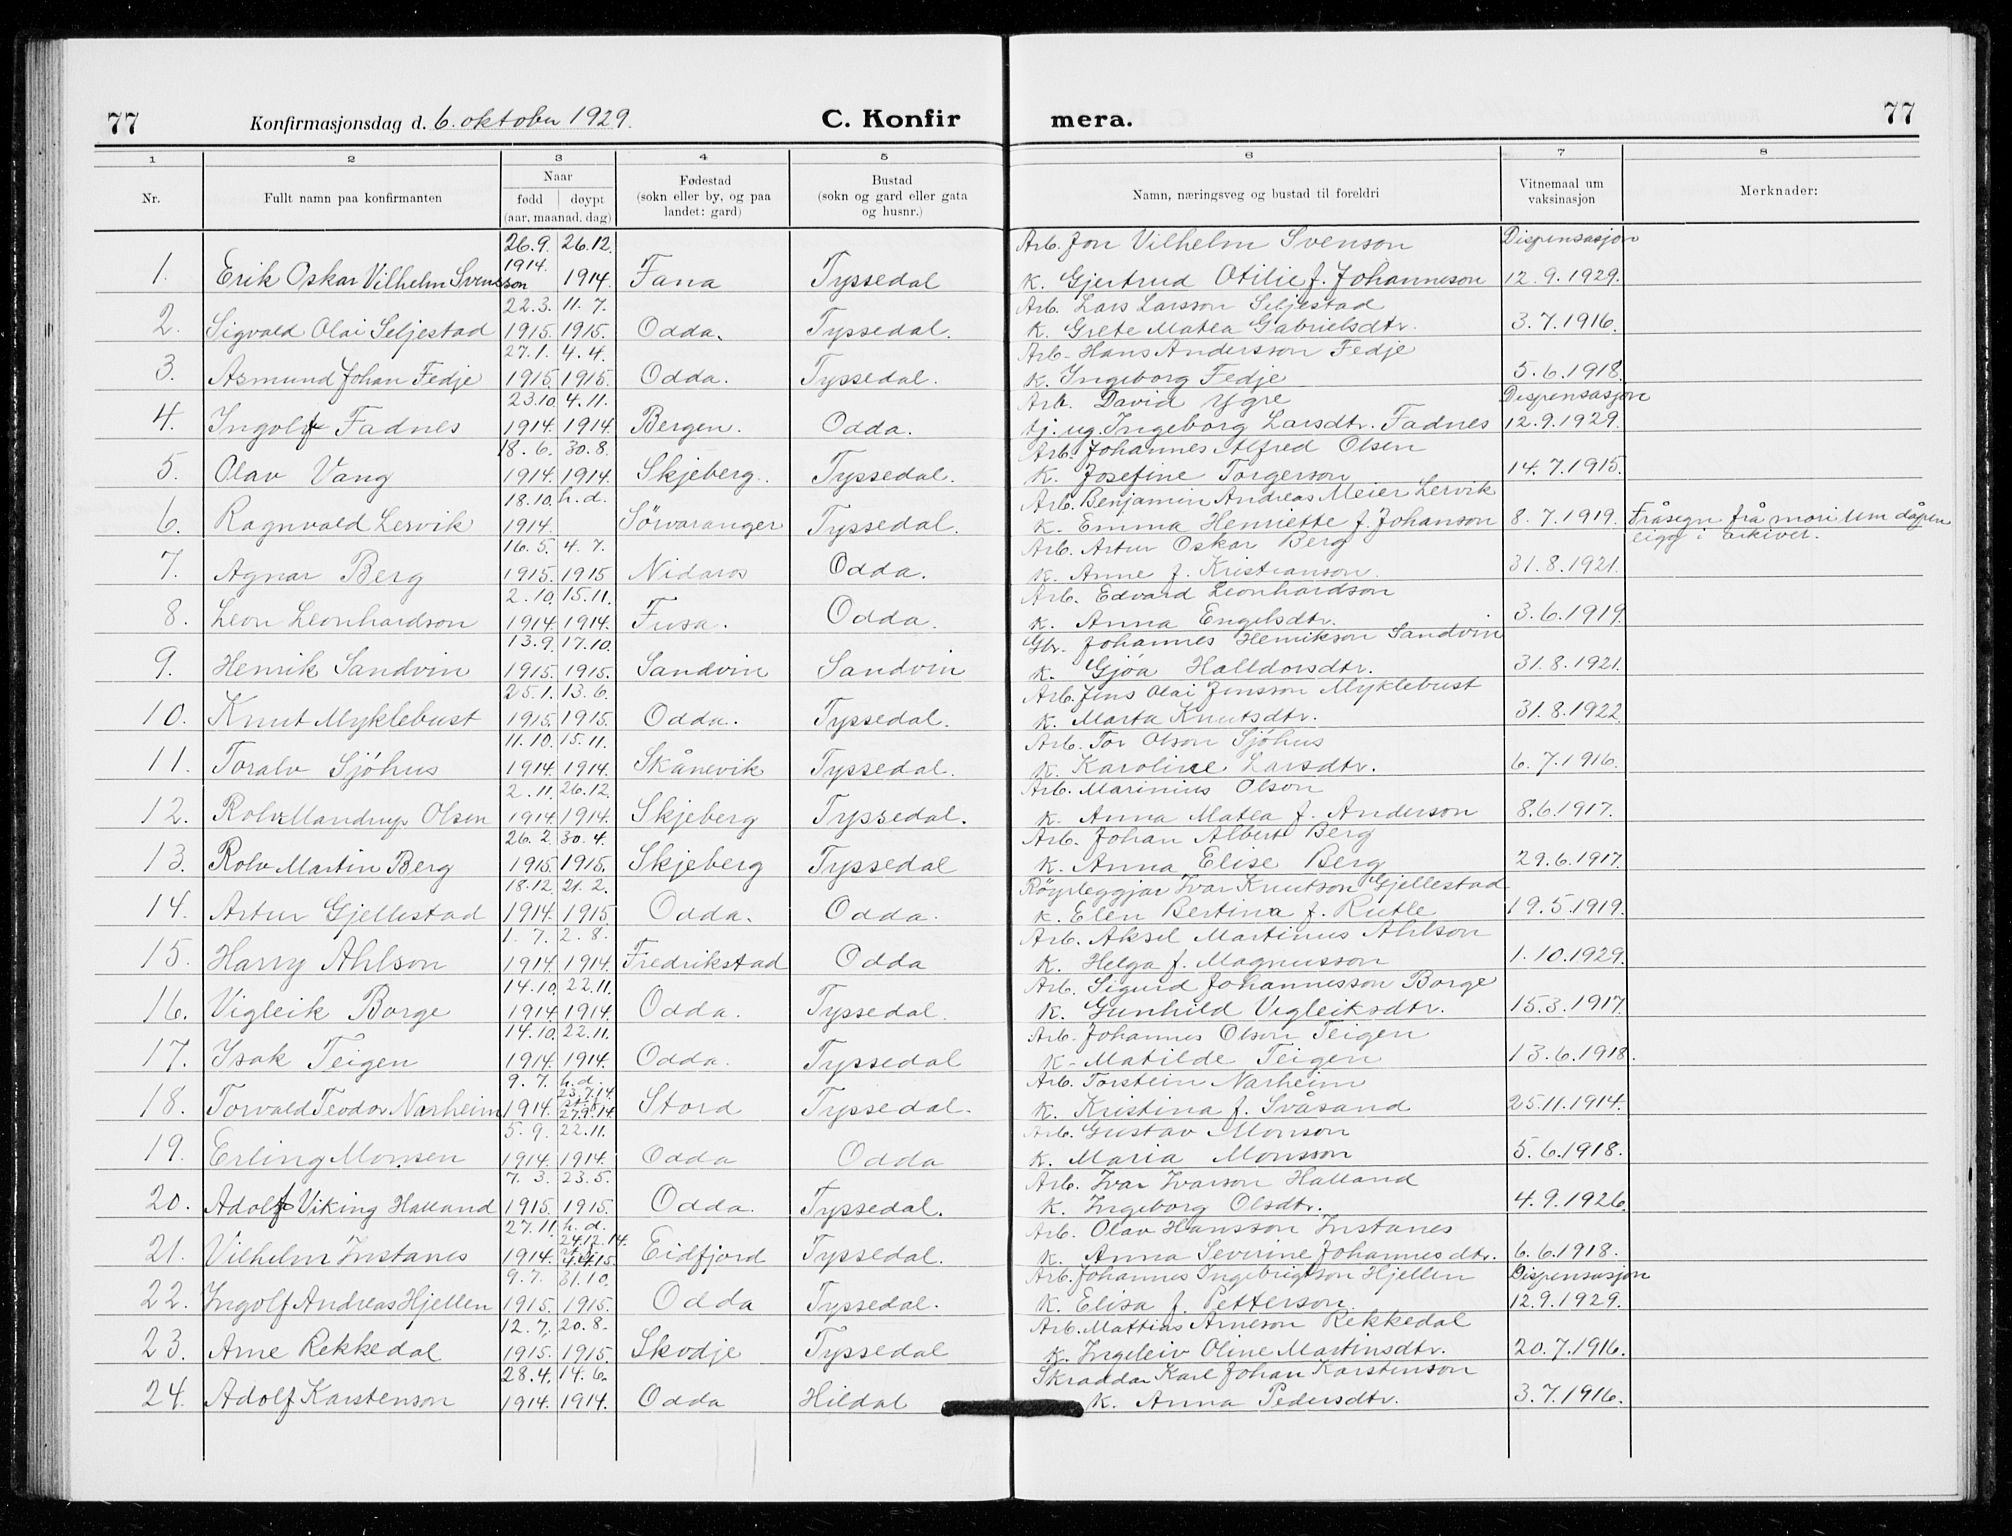 77 Konfirmasjonsdag d. 6. oktober 1929. C. Konfir mera. 77
1 2 3 4 5 6 7 8
Nr. Fullt namn paa konfirmanten Naar fødd døypt (aar, maanad, dag) Fødestad (sokn eller by, og paa landet: gard) Bustad (sokn og gard eller gata og husnr.) Namn, næringsveg og bustad til foreldri Vitnemaal um vaksinasjon Merknader:
26.9. 26.12. Arb. Jon Vilhelm Svenson Dispensasjon
1. Erik Oskar Vilhelm Svensson 1914. 1914. Fana Tyssedal K. Gjertrud Otilie f. Johanneson 12.9.1929.
22.3. 11.7. Arb. Lars Larsson Seljestad
2. Sigvald Olai Seljestad 1915. 1915. Odda. Tyssedal. K. Grete Matea Gabrielsdtr. 3.7.1916.
27.1. 4.4. Arb. Hans Andersson Fedje
3. Asmund Johan Fedje 1915. 1915. Odda. Tyssedal. K. Ingeborg Fedje 5.6.1918.
23.10. 4.11. Arb. David Ygre Dispensasjon
4. Ingolf Fadnes 1914. 1914. Bergen. Odda. tj. ug. Ingeborg Larsdtr. Fadnes 12.9.1929.
18.6. 30.8. Arb. Johannes Alfred Olsen
5. Olav Vang 1914. 1914. Skjeberg. Tyssedal. K. Josefine Torgerson 14.7.1915.
18.10. h.d. Arb. Benjamin Andreas Meier Lervik
6. Ragnvald Lervik 1914. Sörvaranger Tyssedal. K. Emma Henriette f. Johanson 8.7.1919. Fråsegn frå mori um dåpen
16.5. 4.7. Arb. Artur Oskar Berg ligg i arkivet.
7. Agnar Berg 1915. 1915 Nidaros Odda. K. Anne f. Kristianson. 31.8.1921.
2.10. 15.11. Arb. Edvard Leonhardson
8. Leon Leonhardson 1914. 1914. Fusa. Odda. K. Anna Engelsdtr. 3.6.1919.
13.9. 17.10. Gbr. Johannes Henrikson Sandvin
9. Henrik Sandvin 1915. 1915. Sandvin Sandvin K. Gjóa Halldorsdtr. 31.8.1921.
25.1. 13.6. Arb. Jens Olai Jensson Myklebust
10. Knut Myklebust 1915. 1915. Odda. Tyssedal. K. Marta Knutsdtr. 31.8.1922
11.10. 15.11. Arb. Tor Olson Sjöhus
11. Toralv Sjöhus 1914. 1914. Skånevik Tyssedal. K. Karoline Larsdtr. 6.7.1916.
2.11. 26.12. Arb. Marinius Olson
12. Rolv Mandrup Olsen 1914. 1914. Skjeberg Tyssedal. K. Anna Matea f. Anderson 8.6.1917.
26.2. 30.4. Arb. Johan Albert Berg
13. Rolv Martin Berg 1915. 1915. Skjeberg Tyssedal K. Anna Elise Berg 29.6.1917.
18.12. 21.2. Röyrleggjar Ivar Knutson Gjellestad
14. Artur Gjellestad 1914. 1915 Odda. Odda. K. Elen Bertina f. Rutle 19.5.1919.
1.7. 2.8. Arb. Aksel Martinus Ahlson
15. Harry Ahlson 1914. 1914. Fredrikstad Odda K. Helga f. Magnusson 1.10.1929.
14.10. 22.11. Arb. Sigurd Johannesson Borge
16. Vigleik Borge 1914. 1914. Odda. Tyssedal. K. Gunhild Vigleiksdtr. 15.3.1917.
14.10. 22.11. Arb. Johannes Olson Teigen
17. Isak Teigen 1914. 1914. Odda. Tyssedal K. Matilde Teigen 13.6.1918.
9.7. h.d. 23.7.14. Arb. Torstein Narheim
18. Torvald Teodor Narheim 1914. 27.9.14 Stord Tyssedal. K. Kristina f. Svåsand 25.11.1914.
5.9. 22.11. Arb. Gustav Monson
19. Erling Monsen 1914. 1914. Odda Odda K. Maria Monsson 5.6.1918.
7.3. 23.5. Arb. Ivar Ivarson Halland
20. Adolf Viking Halland 1915. 1915. Odda. Tyssedal. K. Ingeborg Olsdtr. 4.9.1926.
27.11. h.d. 24.12.14. Arb. Olav Hansson Instanes
21. Vilhelm Instanes 1914. 4.4.15. Eidfjord Tyssedal. K. Anna Severine Johannesdtr. 6.6.1918.
9.7. 31.10. Arb. Johannes Ingebrigtson Hjellen Dispensasjon
22. Ingolf Andreas Hjellen 1915. 1915. Odda Tyssedal. K. Elisa f. Petterson 12.9.1929.
12.7. 20.8. Arb. Mattias Arneson Rekkedal
23. Arne Rekkedal 1915. 1915. Skodje Tyssedal K. Ingeleiv Oline Martinsdtr. 20.7.1916.
28.4. 14.6. Skraddar Karl Johan Karstenson
24. Adolf Karstenson 1914. 1914. Odda Hildal K. Anna Pedersdtr. 3.7.1916.